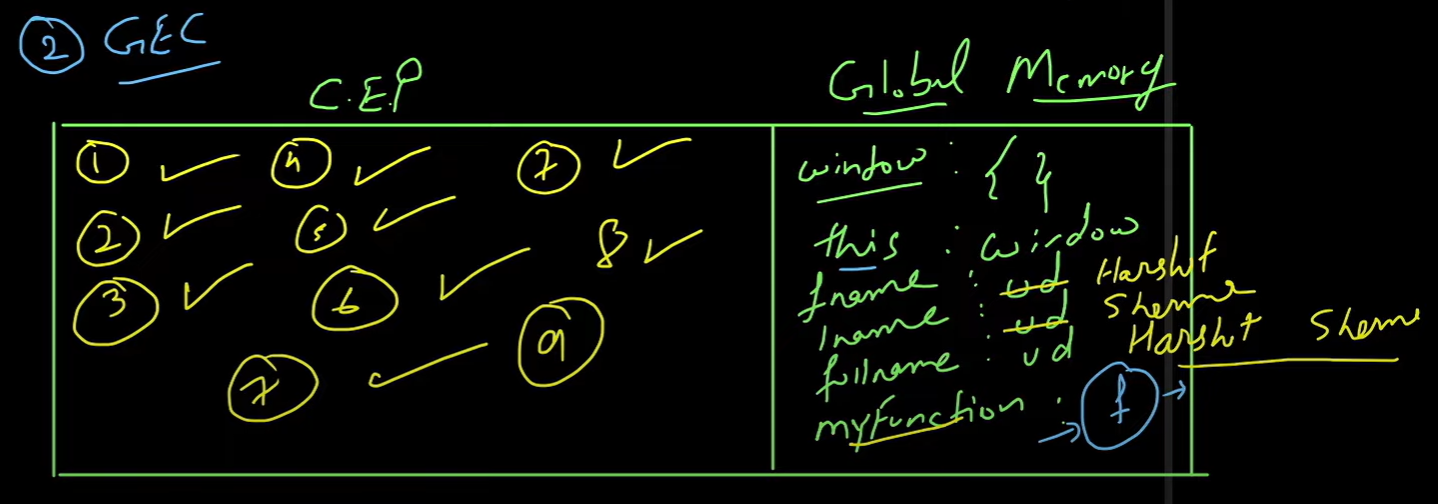 ② GEC
C.E.P
Global Memory
① ④ ⑦
② ⑤ 8
③ ⑥
⑦ ⑨
window : { }
this : window
fname : ud Harshit
lname : ud Sharma
fullname : ud Harshit Sharma
myFunction : f